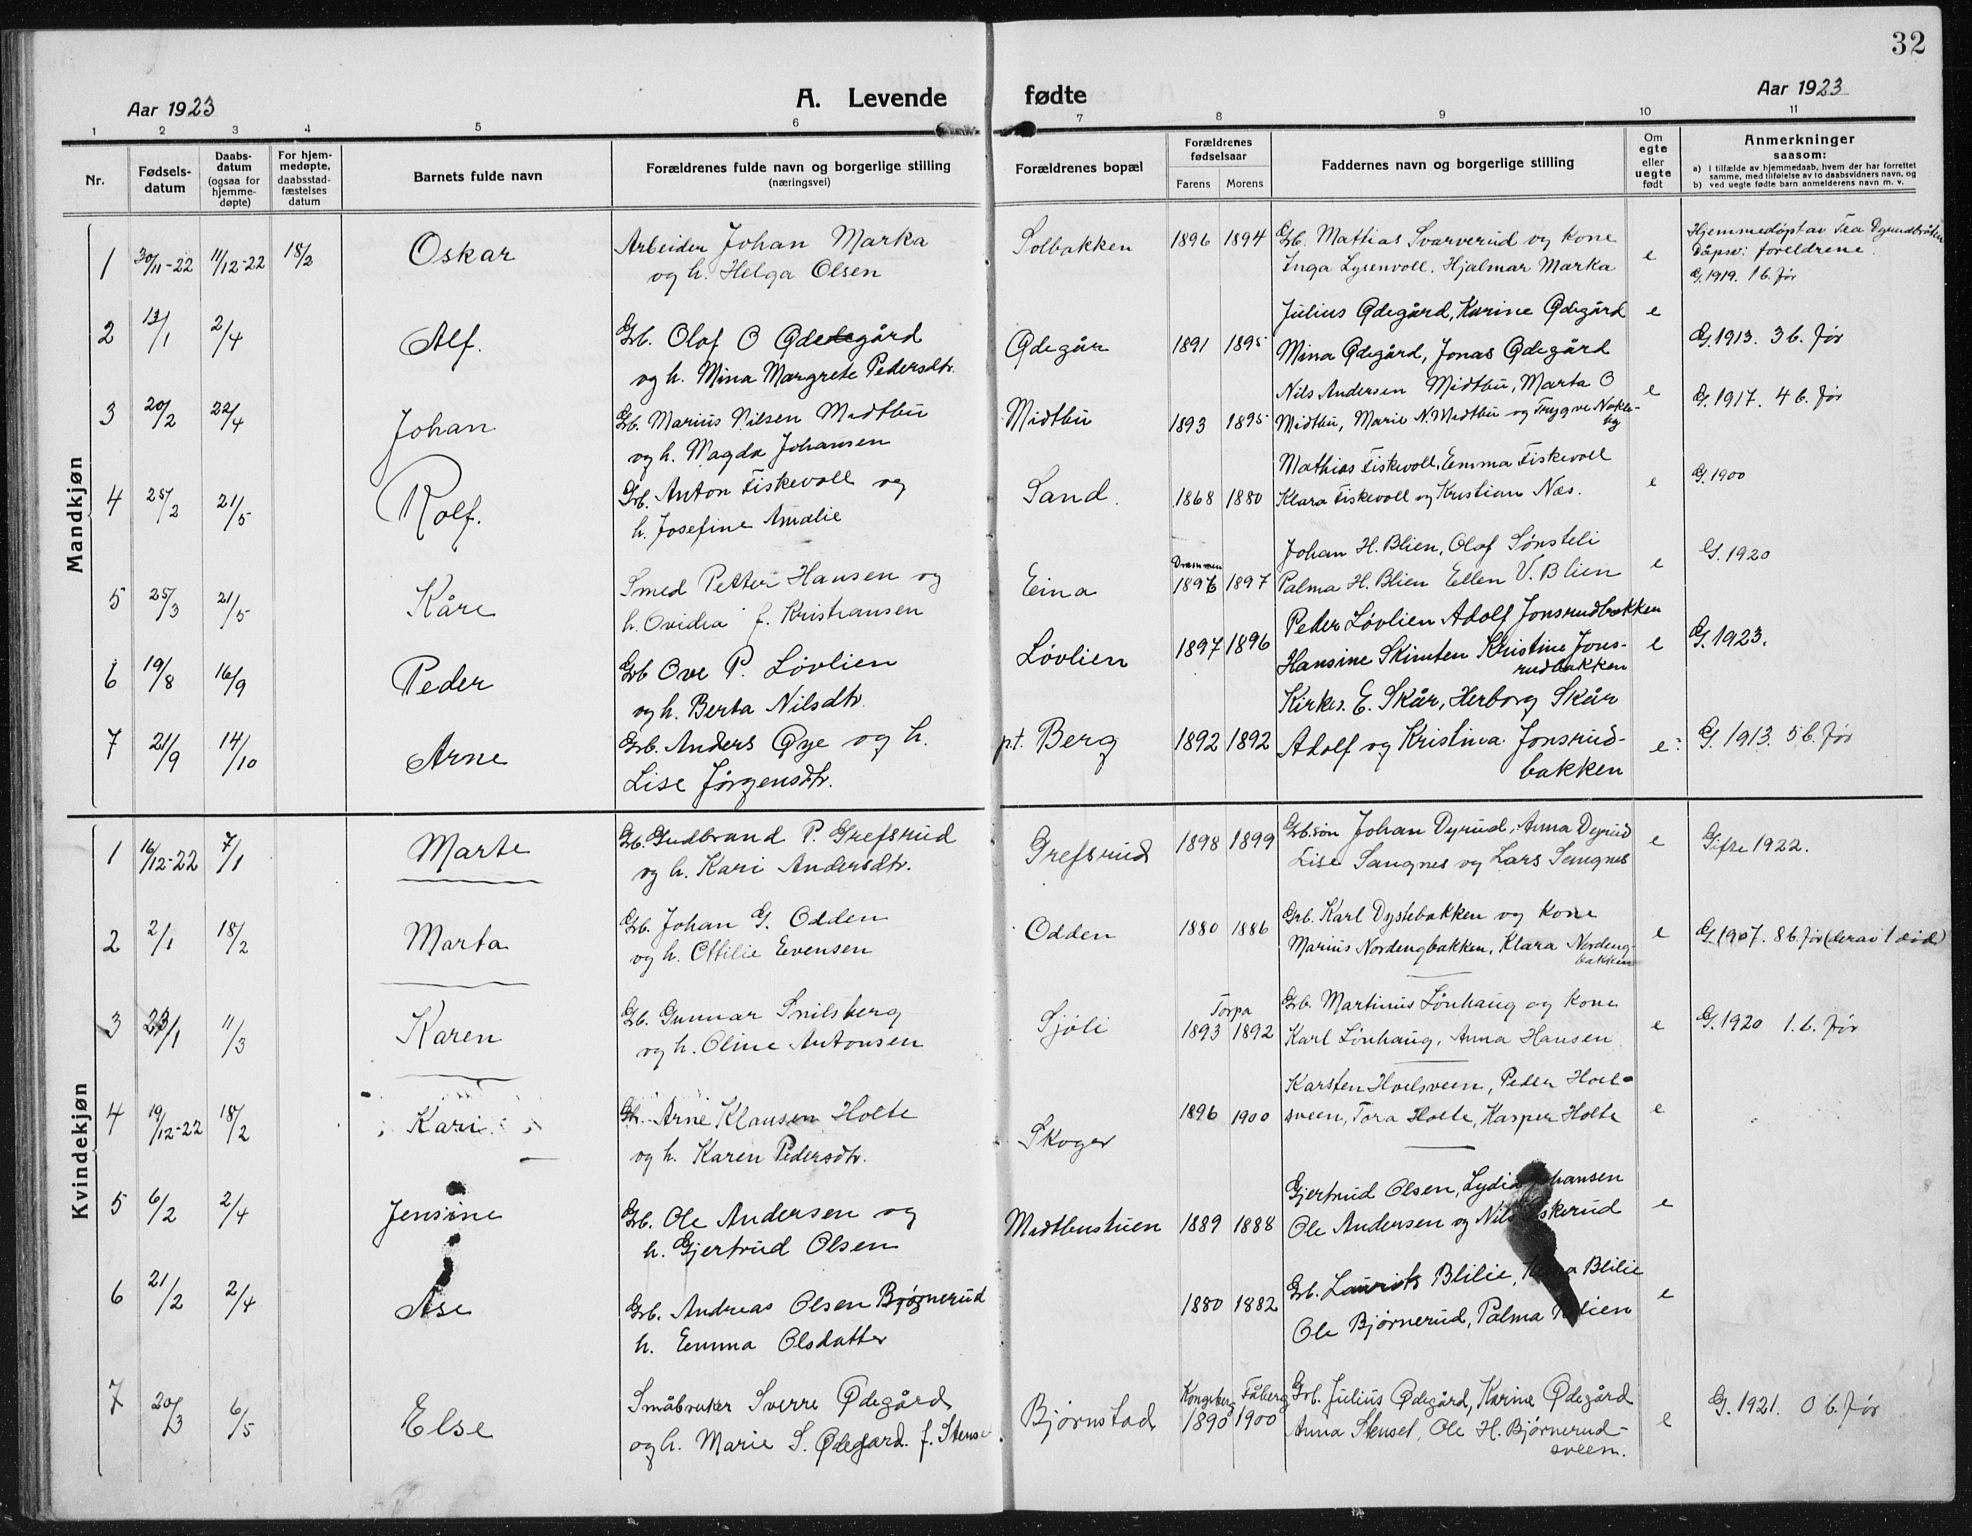 32
Aar 1923
A. Levende fødte
Aar 1923
1 2 3 4 5 6 7 8 9 10 11
Nr.
Fødsels-
datum
Daabs-
datum
(ogsaa for
hjemme-
døpte)
For hjem-
medøpte,
daabsstad-
fæstelses
datum
Barnets fulde navn
Forældrenes fulde navn og borgerlige stilling
(næringsvei)
Forældrenes bopæl
Forældrenes
fødselsaar
Farens Morens
Faddernes navn og borgerlige stilling
Om
egte
eller
uegte
født
Anmerkninger
saasom:
a) i tilfælde av hjemmedaab, hvem der har forrettet
samme, med tilføielse av to daabsvidners navn, og
b) ved uegte fødte barn anmelderens navn m. v.
Mandkjøn
1 30/11-22 11/12-22 18/2 Oskar
Arbeider Johan Marka
og h. Helga Olsen
Solbakken 1896 1894
Grb. Mathias Svarverud og kone
Inga Lysenvoll. Hjalmar Marka
e
Hjemmedøpt av Tea
Dåpsv: foreldrene.
G. 1919. 1 b. før
2 13/1 2/4 Alf.
Grb. Olaf O Ødegård
og h. Mina Margrete Pedersdtr.
Ødegår 1891 1895
Julius Ødegård, Karine Ødegård
Mina Ødegård, Jonas Ødegård
e
G. 1913. 3 b. før
3 20/2 22/4 Johan
Grb. Marius Nilsen Midtbu
og h. Magda Johansen
Midtbu 1893 1895
Nils Andersen Midtbu, Marta O
Midtbu, Marie N. Midtbu og Trygve Nokle-
by
e
G. 1917. 4 b. før
4 25/2 21/5 Rolf.
Grb. Anton Fiskevoll og
h. Josefine Amalie
Sand. 1868 1880
Mathias Fiskevoll, Emma Fiskevoll
Klara Fiskevoll og Kristian Næs.
e
G. 1900
5 25/3 21/5 Kåre
Smed Petter Hansen og
h. Ovidia f. Kristiansen
Eina
1896 1897
Johan H. Blien, Olaf Sønsteli
Palma H. Blien Ellen V. Blien
e
G. 1920
6 19/8 16/9 Peder
Grb Ove P. Løvlien
og h. Berta Nilsdtr.
Løvlien 1897 1896
Peder Løvlien Adolf Jonsrudbakken
Hansine Skimten Kristine Jons-
rudbakken
e
G. 1923.
7 21/9 14/10 Arne
Grb. Anders Øye og h.
Lise Jørgensdtr.
p.t. Berg 1892 1892
Kirkes. E. Skår, Herborg Skår
Adolf og Kristina Jonsrud-
bakken
e
G. 1913. 5 b. før
Kvindekjøn
1 16/12-22 7/1 Marte
Grb. Gudbrand P. Grefsrud
og h. Kari Andersdtr.
Grefsrud 1898 1899
Grb.søn Johan Dyrud, Anna Dyrud
Lise Sangnes og Lars Sangnes
e
Gifte 1922.
2 2/1 18/2 Marta
Grb. Johan G. Odden
og h. Ottilie Evensen
Odden 1880 1886
Grb. Karl Dystebakken og kone
Marius Nordengbakken, Klara Nordeng-
bakken
e
G. 1907. 8 b. før (derav 1 død)
3 23/1 11/3 Karen
Grb. Gunnar Snilsberg
og h. Oline Antonsen
Sjøli
Torpa
1893 1892
Grb. Martinus Lønhaug og kone
Karl Lønhaug, Anna Hansen
e
G. 1920 1. b. før
4 19/12-22 18/2 Kari
Grb. Arne Klausen Holte
og h. Karen Pedersdtr.
Skoger 1896 1900
Karsten Hoelsveen, Peder Hoel-
sveen, Tora Holte, Kasper Holte
e
5 6/2 2/4 Jensine
Grb. Ole Andersen og
h. Gjertrud Olsen
Midtbustuen 1889 1888
Gjertrud Olsen, Lydia Johansen
Ole Andersen og Nils
e
6 21/2 2/4 Ase
Grb. Andreas Olsen Bjørnerud
h. Emma Olsdatter
1880 1882
Grb. Laurits Blilie, Blilie
Ole Bjørnerud, Palma
e
7 20/3 6/5 Else
Småbruker Sverre Ødegård
og h. Marie S. Ødegård. f. Stense
Bjørnstad
Kongsberg Fåberg
1890 1900
Grb. Julius Ødegård, Karine Ødegård
Anna Stenset, Ole H. Bjørnerud-
sveen.
e
G. 1921. 0 b. før